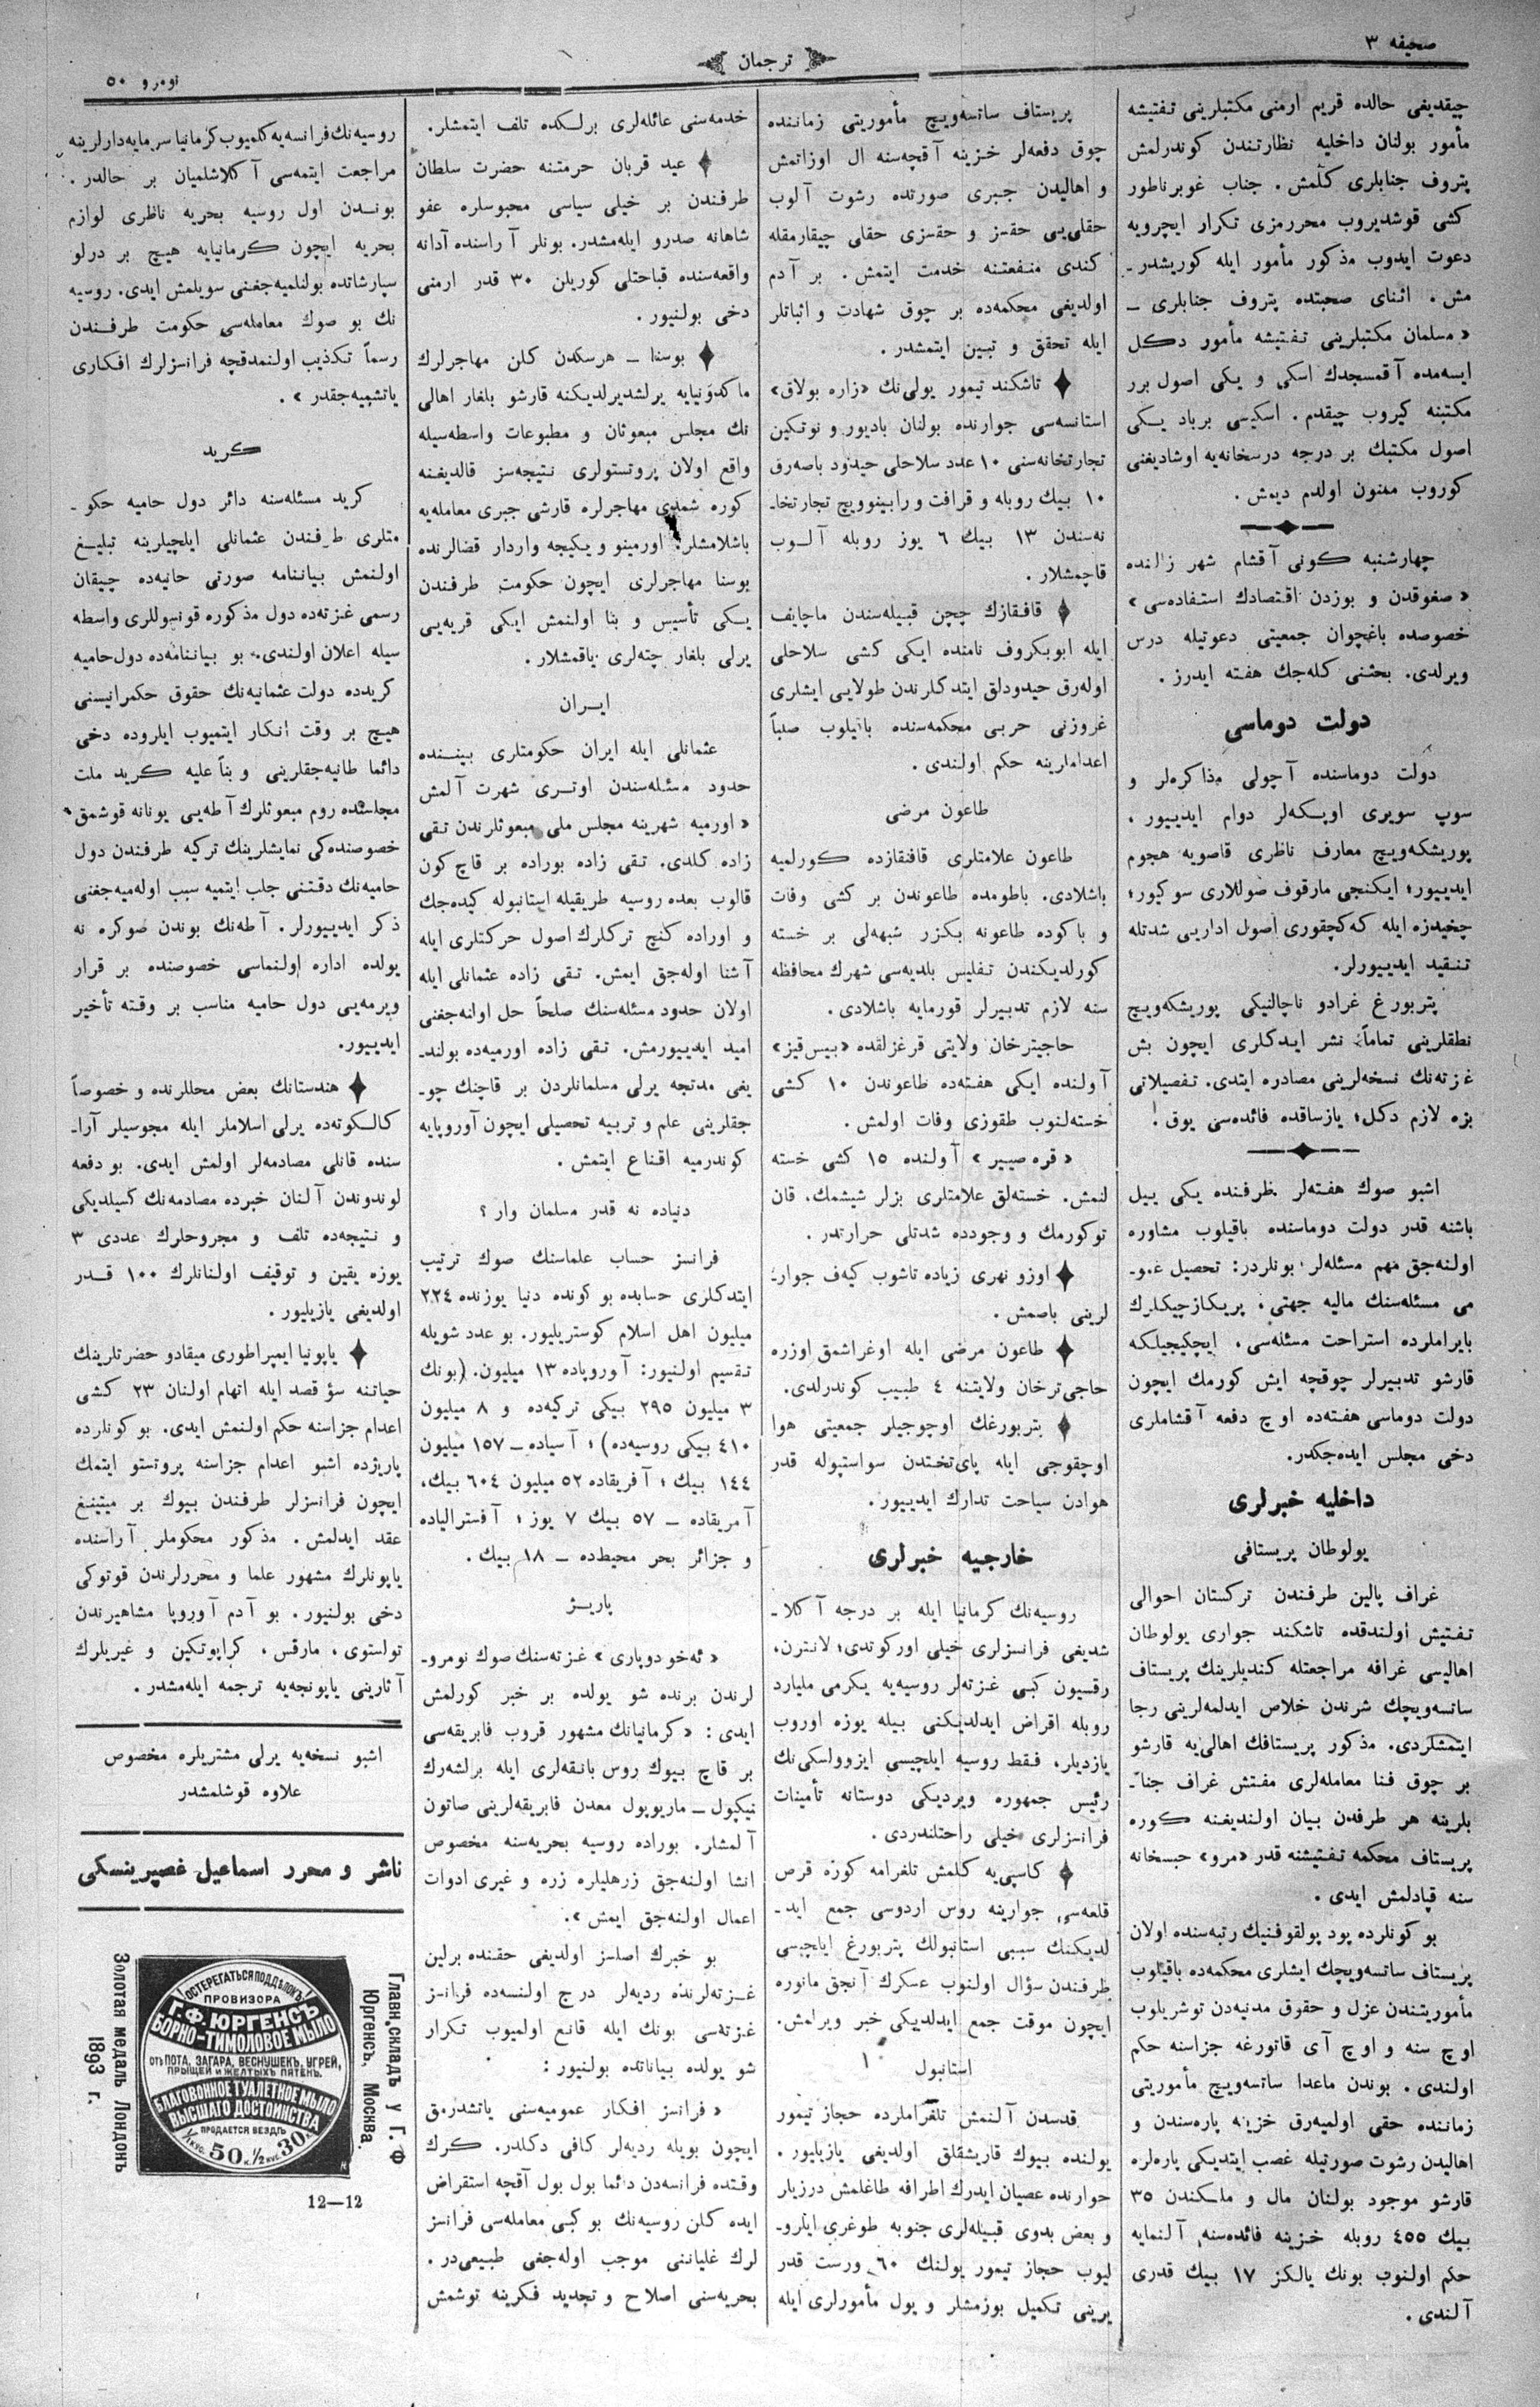 صحیفه ٣
ترجمان
نومرو ٥٠
چیقدیغی حالده قریم ارمنی مكتبلرینی تفتیشه
مأمور بولنان داخلیه نظارتندن كوندرلمش
پتروف جنابلری كلمش. جناب غوبرناطور
كشی قوشدیروب محررمزی تكرار ایچرویه
دعوت ایدوب مذكور مأمور ایله كوریشدر-
مش. اثنای صحبتده پتروف جنابلری —
«مسلمان مكتبلرینی تفتیشه مأمور دكل
ایسه‌مده آقمسجدك اسكی و یكی اصول برر
مكتبنه كیروب چیقدم. اسكیسی برباد یكی
اصول مكتبك بر درجه درسخانه‌یه اوشادیغنی
كوروب ممنون اولدم دیمش.
چهارشنبه كونی آقشام شهر زالنده
«صغوقدن و بوزدن اقتصادك استفاده‌سی»
خصوصده باغچوان جمعیتی دعوتیله درس
ویرلدی. بحثنی كله‌جك هفته ایدرز.
دولت دوماسی
دولت دوماسنده آچولی مذاكره‌لر و
سوپ سویری اوبكه‌لر دوام ایدییور.
پوریشكه‌ویچ معارف ناظری قاصویه هجوم
ایدییور؛ ایكنجی مارقوف صوللاری سوكیور؛
چخیدزه ایله كه‌كچقوری اصول اداریی شدتله
تنقید ایدییورلر.
پتربورغ غرادو ناچالنیكی پوریشكه‌ویچ
نطقلرینی تماماً نشر ایدكلری ایچون بش
غزته‌نك نسخه‌لرینی مصادره ایتدی. تفصیلاتی
بزه لازم دكل؛ یازساقده فائده‌سی یوق!
اشبو صوك هفته‌لر ظرفنده یكی ییل
باشنه قدر دولت دوماسنده باقیلوب مشاوره
اولنه‌جق مهم مسئله‌لر بونلردر: تحصیل عمو-
می مسئله‌سنك مالیه جهتی، پریكازچیكلرك
بایراملرده استراحت مسئله‌سی، ایچكیجیلكه
قارشو تدبیرلر چوقچه ایش كورمك ایچون
دولت دوماسی هفته‌ده اوچ دفعه آقشاملری
دخی مجلس ایده‌جكدر.
داخلیه خبرلری
یولوطان پریستافی
غراف پالین طرفندن تركستان احوالی
تفتیش اولندقده تاشكند جواری یولوطان
اهالیسی غرافه مراجعتله كندیلرینك پریستاف
ساتسه‌ویچك شرندن خلاص ایدلمه‌لرینی رجا
ایتمشلردی. مذكور پریستافك اهالی‌یه قارشو
بر چوق فنا معامله‌لری مفتش غراف جنا-
بلرینه هر طرفدن بیان اولندیغنه كوره
پریستاف محكمه تفتیشنه قدر «مرو» حبسخانه
سنه قپادلمش ایدی.
بو كونلرده پود پولقوفنیك رتبه‌سنده اولان
پریستاف ساتسه‌ویچك ایشلری محكمه‌ده باقیلوب
مأموریتندن عزل و حقوق مدنیه‌دن توشریلوب
اوچ سنه و اوچ آی قاتورغه جزاسنه حكم
اولندی. بوندن ماعدا ساتسه‌ویچ مأموریتی
زماننده حقی اولمیه‌رق خزینه پاره‌سندن و
اهالیدن رشوت صورتیله غصب ایتدیكی پاره‌لره
قارشو موجود بولنان مال و ملكندن ٣٥
بیك ٤٥٥ روبله خزینه فائده‌سنه آلنمایه
حكم اولنوب بونك یالكز ١٧ بیك قدری
آلندی.
پریستاف ساتسه‌ویچ مأموریتی زماننده
چوق دفعه‌لر خزینه آقچه‌سنه ال اوزاتمش
و اهالیدن جبری صورتده رشوت آلوب
حقلی‌یی حقسز و حقسزی حقلی چیقارمقله
كندی منفعتنه خدمت ایتمش. بر آدم
اولدیغی محكمه‌ده بر چوق شهادت و اثباتلر
ایله تحقق و تبین ایتمشدر.
تاشكند تیمور یولی‌نك «زاره بولاق»
استانسه‌سی جوارنده بولنان بادیور و نوتكین
تجارتخانه‌سنی ١٠ عدد سلاحلی حیدود باصه‌رق
١٠ بیك روبله و قرافت و رابینوویچ تجارتخا-
نه‌سندن ١٣ بیك ٦ یوز روبله آلوب
قاچمشلار.
قافقازك چچن قبیله‌سندن ماچایف
ایله ابوبكروف نامنده ایكی كشی سلاحلی
اوله‌رق حیدودلق ایتدكلرندن طولایی ایشلری
غروزنی حربی محكمه‌سنده باقیلوب صلباً
اعداملرینه حكم اولندی.
طاعون مرضی
طاعون علامتلری قافقازده كورلمیه
باشلادی. باطومده طاعوندن بر كشی وفات
و باكوده طاعونه بكزر شبهه‌لی بر خسته
كورلدیكندن تفلیس بلدیه‌سی شهرك محافظه
سنه لازم تدبیرلر قورمایه باشلادی.
حاجیترخان ولایتی قرغزلقده «بیس‌قیز»
آولنده ایكی هفته‌ده طاعوندن ١٠ كشی
خسته‌لنوب طقوزی وفات اولمش.
«قره صییر» آولنده ١٥ كشی خسته
لنمش. خسته‌لق علامتلری بزلر شیشمك، قان
توكورمك و وجودده شدتلی حرارتدر.
اوزو نهری زیاده تاشوب كیه‌ف جوار-
لرینی باصمش.
طاعون مرضی ایله اوغراشمق اوزره
حاجی‌ترخان ولایتنه ٤ طبیب كوندرلدی.
پتربورغك اوچوجیلر جمعیتی هوا
اوچقوجی ایله پای‌تختدن سواستپوله قدر
هوادن سیاحت تدارك ایدییور.
خارجیه خبرلری
روسیه‌نك كرمانیا ایله بر درجه آكلا-
شدیغی فرانسزلری خیلی اوركوتدی؛ لانترن،
رقسیون كبی غزته‌لر روسیه‌یه یكرمی ملیارد
روبله اقراض ایدلدیكنی بیله یوزه اوروب
یازدیلر، فقط روسیه ایلچیسی ایزوولسكی‌نك
رئیس جمهوره ویردیكی دوستانه تأمینات
فرانسزلری خیلی راحتلندردی.
كاسپی‌یه كلمش تلغرامه كوره قرص
قلعه‌سی جوارینه روس اردوسی جمع اید-
لدیكنك سببی استانبولك پتربورغ ایلچیسی
طرفندن سؤال اولنوب عسكرك آنجق مانوره
ایچون موقت جمع ایدلدیكی خبر ویرلمش.
استانبول
قدسدن آلنمش تلغراملرده حجاز تیمور
یولنده بیوك قاریشقلق اولدیغی یازیلیور.
جوارنده عصیان ایدرك اطرافه طاغلمش درزیلر
و بعض بدوی قبیله‌لری جنوبه طوغری ایلرو-
لیوب حجاز تیمور یولنك ٦٠ ورست قدر
یرینی تكمیل بوزمشلر و یول مأمورلری ایله
خدمه‌سنی عائله‌لری برلكده تلف ایتمشلر.
عید قربان حرمتنه حضرت سلطان
طرفندن بر خیلی سیاسی محبوسلره عفو
شاهانه صدرو ایله‌مشدر. بونلر آراسنده آدانه
واقعه‌سنده قباحتلی كوریلن ٣٠ قدر ارمنی
دخی بولنیور.
بوسنا — هرسكدن كلن مهاجرلرك
ماكدونیایه یرلشدیرلدیكنه قارشو بلغار اهالی
نك مجلس مبعوثان و مطبوعات واسطه‌سیله
واقع اولان پروتستولری نتیجه‌سز قالدیغنه
كوره شمدی مهاجرلره قارشی جبری معامله‌یه
باشلامشلر. اورمینو و یكیجه واردار قضالرنده
بوسنا مهاجرلری ایچون حكومت طرفندن
یكی تأسیس و بنا اولنمش ایكی قریه‌یی
یرلی بلغار چته‌لری یاقمشلار.
ایران
عثمانلی ایله ایران حكومتلری بیننده
حدود مسئله‌سندن اوتری شهرت آلمش
«اورمیه شهرینه مجلس ملی مبعوثلرندن تقی
زاده كلدی. تقی زاده بوراده بر قاچ كون
قالوب بعده روسیه طریقیله استانبوله كیده‌جك
و اوراده كنچ تركلرك اصول حركتلری ایله
آشنا اوله‌جق ایمش. تقی زاده عثمانلی ایله
اولان حدود مسئله‌سنك صلحاً حل اوانه‌جغنی
امید ایدییورمش. تقی زاده اورمیه‌ده بولند-
یغی مدتجه یرلی مسلمانلردن بر قاچنك چو-
جقلرینی علم و تربیه تحصیلی ایچون آوروپایه
كوندرمیه اقناع ایتمش.
دنیاده نه قدر مسلمان وار؟
فرانسز حساب علماسنك صوك ترتیب
ایتدكلری حسابده بو كونده دنیا یوزنده ٢٢٤
میلیون اهل اسلام كوستریلیور. بو عدد شویله
تقسیم اولنیور: آوروپاده ١٣ میلیون. (بونك
٣ میلیون ٢٩٥ بیكی تركیه‌ده و ٨ میلیون
٤١٠ بیكی روسیه‌ده)؛ آسیاده — ١٥٧ میلیون
١٤٤ بیك؛ آفریقاده ٥٢ میلیون ٦٠٤ بیك،
آمریقاده — ٥٧ بیك ٧ یوز؛ آفسترالیاده
و جزائر بحر محیطده — ١٨ بیك.
پاریژ
«ئه‌خو دوپاری» غزته‌سنك صوك نومرو-
لرندن برنده شو یولده بر خبر كورلمش
ایدی: «كرمانیانك مشهور قروب فابریقه‌سی
بر قاچ بیوك روس بانقه‌لری ایله برلشه‌رك
نیكپول — ماریوپول معدن فابریقه‌لرینی صاتون
آلمشلر. بوراده روسیه بحریه‌سنه مخصوص
انشا اولنه‌جق زرهلیلره زره و غیری ادوات
اعمال اولنه‌جق ایمش».
بو خبرك اصلسز اولدیغی حقنده برلین
غزته‌لرنده ردیه‌لر درج اولنسه‌ده فرانسز
غزته‌سی بونك ایله قانع اولمیوب تكرار
شو یولده بیاناتده بولنیور:
«فرانسز افكار عمومیه‌سنی یاتشدرمق
ایچون بویله ردیه‌لر كافی دكلدر. كرك
وقتده فرانسه‌دن دائما بول بول آقچه استقراض
ایده كلن روسیه‌نك بو كبی معامله‌سی فرانسز
لرك غلیاننی موجب اوله‌جغی طبیعی‌در.
بحریه‌سنی اصلاح و تجدید فكرینه توشمش
روسیه‌نك فرانسه‌یه كلمیوب كرمانیا سرمایه‌دارلرینه
مراجعت ایتمه‌سی آكلاشلمیان بر حالدر.
بوندن اول روسیه بحریه ناظری لوازم
بحریه ایچون كرمانیایه هیچ بر درلو
سپارشاتده بولنلمیه‌جغنی سویلمش ایدی. روسیه
نك بو صوك معامله‌سی حكومت طرفندن
رسماً تكذیب اولنمدقچه فرانسزلرك افكاری
یاتشمیه‌جقدر».
كرید
كرید مسئله‌سنه دائر دول حامیه حكو-
متلری طرفندن عثمانلی ایلچیلرینه تبلیغ
اولنمش بیاننامه صورتی حانیه‌ده چیقان
رسمی غزته‌ده دول مذكوره قونسوللری واسطه
سیله اعلان اولندی. بو بیاننامه‌ده دول حامیه
كریدده دولت عثمانیه‌نك حقوق حكمرانیسنی
هیچ بر وقت انكار ایتمیوب ایلروده دخی
دائما طانیه‌جقلرینی و بناً علیه كرید ملت
مجلسنده روم مبعوثلرك آطه‌یی یونانه قوشمق
خصوصنده‌كی نمایشلرینك تركیه طرفندن دول
حامیه‌نك دقتنی جلب ایتمیه سبب اوله‌میه‌جغنی
ذكر ایدییورلر. آطه‌نك بوندن صوكره نه
یولده اداره اولنماسی خصوصنده بر قرار
ویرمه‌یی دول حامیه مناسب بر وقته تأخیر
ایدییور.
هندستانك بعض محللرنده و خصوصاً
كالكوته‌ده یرلی اسلاملر ایله مجوسیلر آرا-
سنده قانلی مصادمه‌لر اولمش ایدی. بو دفعه
لوندوندن آلنان خبرده مصادمه‌نك كسیلدیكی
و نتیجه‌ده تلف و مجروحلرك عددی ٣
یوزه یقین و توقیف اولنانلرك ١٠٠ قدر
اولدیغی یازیلیور.
یاپونیا ایمپراطوری میقادو حضرتلرینك
حیاتنه سؤ قصد ایله اتهام اولنان ٢٣ كشی
اعدام جزاسنه حكم اولنمش ایدی. بو كونلرده
پاریژده اشبو اعدام جزاسنه پروتستو ایتمك
ایچون فرانسزلر طرفندن بیوك بر میتینغ
عقد ایدلمش. مذكور محكوملر آراسنده
یاپونلرك مشهور علما و محررلرندن قوتوكی
دخی بولنیور. بو آدم آوروپا مشاهیرندن
تولستوی، مارقس، كراپوتكین و غیریلرك
آثارینی یاپونجه‌یه ترجمه ایله‌مشدر.
اشبو نسخه‌یه یرلی مشتریلره مخصوص
علاوه قوشلمشدر
ناشر و محرر اسماعیل غصپرینسكی
Главн. складъ у Г. Ф
Юргенсъ, Москва.
ОСТЕРЕГАТЬСЯ ПОДДѢЛОКЪ
ПРОВИЗОРА
Г.Ф. ЮРГЕНСЪ
БОРНО-ТИМОЛОВОЕ МЫЛО
ОТЪ ПОТА, ЗАГАРА, ВЕСНУШЕКЪ, УГРЕЙ,
ПРЫЩЕЙ И ЖЕЛТЫХЪ ПЯТЕНЪ.
БЛАГОВОННОЕ ТУАЛЕТНОЕ МЫЛО
ВЫСШАГО ДОСТОИНСТВА
ПРОДАЕТСЯ ВЕЗДѢ
1/1 КУС. 50 К. 1/2 КУС. 30 К.
Золотая медаль Лондонъ
1893 г.
12—12